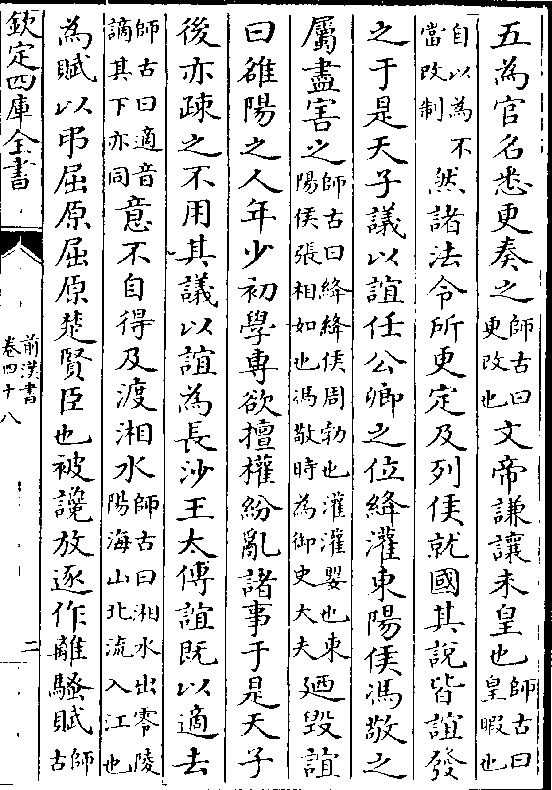 五為官名悉更奏之師古曰更改也文帝謙讓未皇也師古曰皇暇也
自以為不當改制然諸法令所更定及列侯就國其說皆誼發
之于是天子議以誼任公卿之位絳灌東陽侯馮敬之
屬盡害之師古曰絳絳侯周勃也灌灌嬰也東陽侯張相如也馮敬時為御史大夫廼毀誼
曰雒陽之人年少初學專欲擅權紛亂諸事于是天子
後亦疎之不用其議以誼為長沙王太傅誼既以適去
師古曰適音謫其下亦同意不自得及渡湘水師古曰湘水出零陵陽海山北流入江也
為賦以弔屈原屈原楚賢臣也被讒放逐作離騷賦師古
欽定四庫全書
前漢書
卷四十八
二